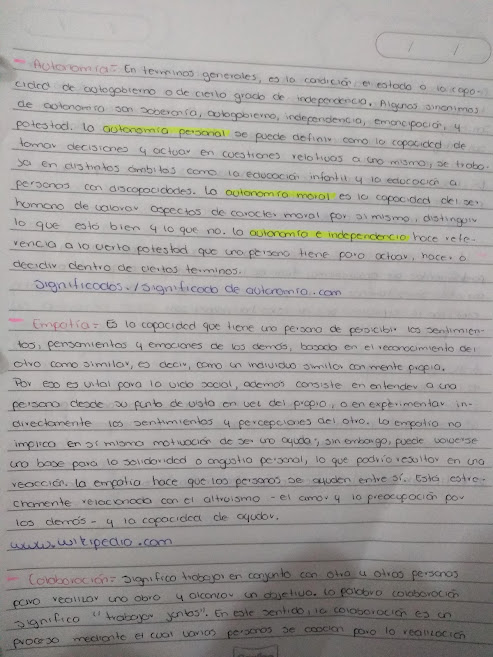 - Autonomía = En terminos generales, es la condición el estado o la capa-
cidad de autogobierno o de cierto grado de independencia. Algunos sinonimos
de autonomia son soberania, autogobierno, independencia, emancipación, y
potestad. La autonomía personal se puede definir como la capacidad de
tomar decisiones y actuar en cuestiones relativas a uno mismo, se traba-
ja en distintos ambitos como la educación infantil y la educación a
personas con discapacidades. La autonomia moral es la capacidad del ser
humano de valorar aspectos de caracter moral por si mismo, distinguir
lo que esta bien y lo que no. La autonomia e independencia hace refe-
rencia a la cierta potestad que una persona tiene para actuar, hacer o
decidir dentro de ciertos terminos.
significados./significado de autonomia.com
- Empatía = Es la capacidad que tiene una persona de percibir los sentimien-
tos, pensamientos y emociones de los demás, basada en el reconocimiento del
otro como similar, es decir, como un individuo similar con mente propia.
Por eso es vital para la vida social, ademas consiste en entender a una
persona desde su punto de vista en vez del propio, o en experimentar in-
directamente los sentimientos y percepciones del otro. La empatia no
implica en si misma motivación de ser una ayuda, sin embargo, puede volverse
una base para la solidaridad o angustia personal, lo que podria resultar en una
reacción. La empatia hace que las personas se ayuden entre sí. Está estre-
chamente relacionada con el altruismo - el amor y la preocupación por
los demás - y la capacidad de ayudar.
www.wikipedia.com
- Colaboración = Significa trabajar en conjunto con otra u otras personas
para realizar una obra y alcanzar un objetivo. La palabra colaboración
significa "trabajar juntos". En este sentido, la colaboración es un
proceso mediante el cual varias personas se asocian para la realización